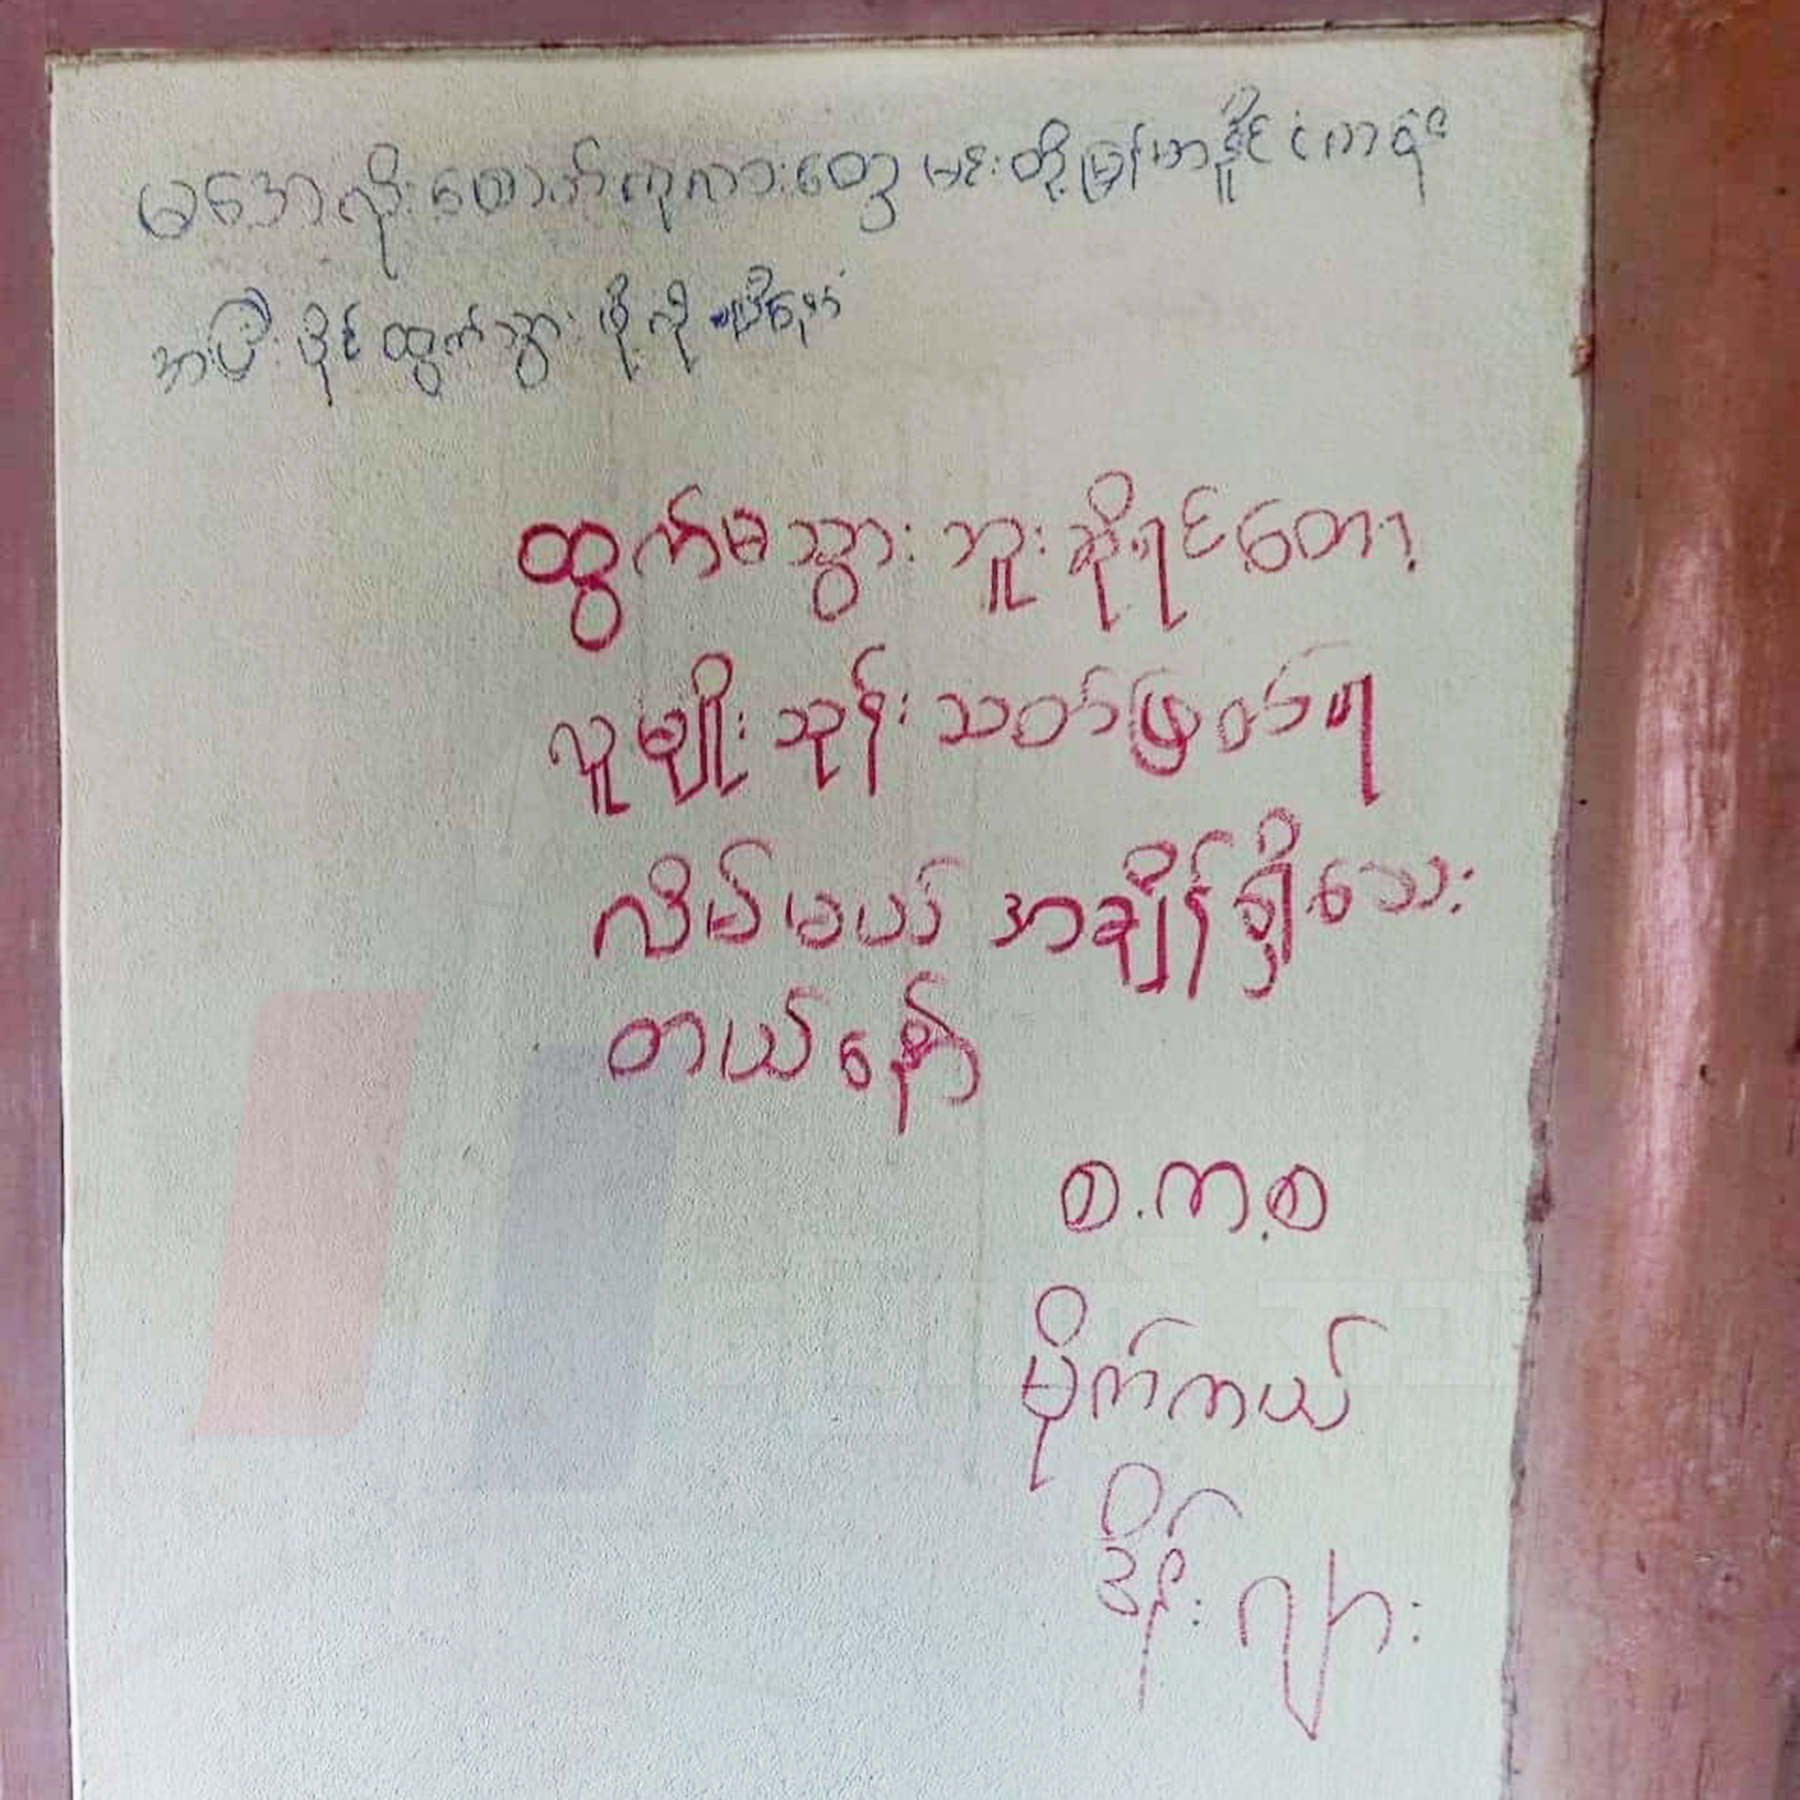 မအေလိုး တောက်ကုလားတွေ မင်းတို့မြန်မာနိူင်ငံကရင်
အပြီးပိုင်ထွက်သွားဖို့လိုနေပြီနော်
ထွက်မသွားဘူးဆိုရင်တော့
လူမျိုးသုန်းသတ်ဖြတ်ရ
လိမ်မယ် အချိန်ရှိသေး
တယ်နော်
စ.က.စ
မိုက်ကယ်
ဒိန်းဂျား